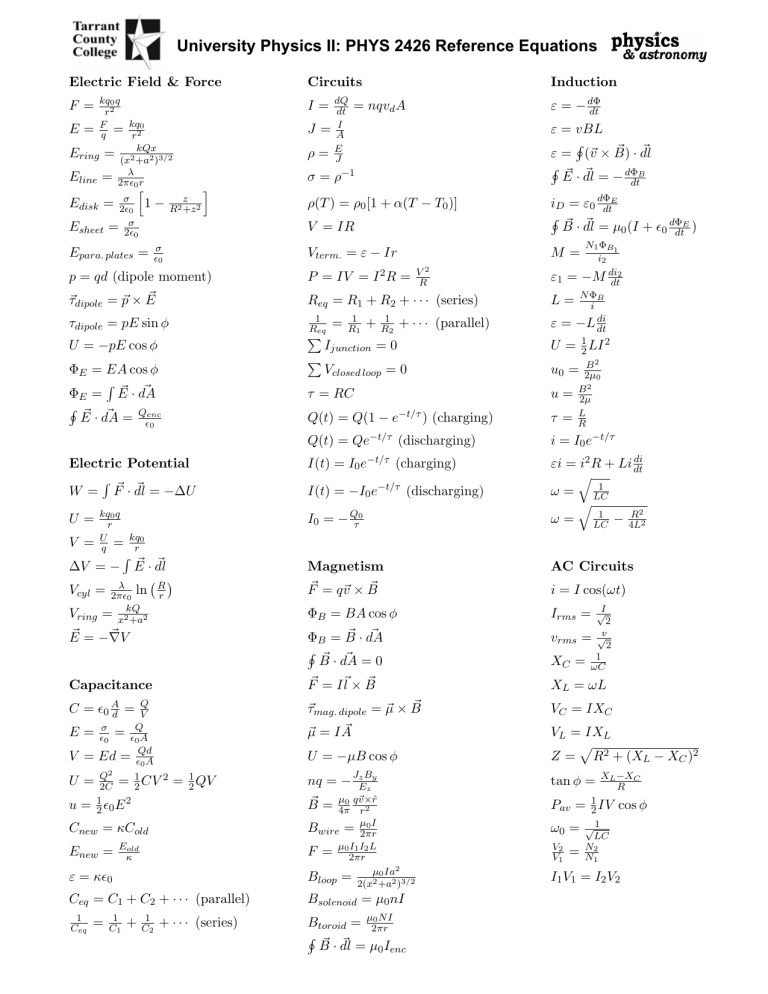 Tarrant
County
College
University Physics II: PHYS 2426 Reference Equations
physics
& astronomy
Electric Field & Force
F = \frac{kq_0q}{r^2}
E = \frac{F}{q} = \frac{kq_0}{r^2}
E_{ring} = \frac{kQx}{(x^2+a^2)^{3/2}}
E_{line} = \frac{λ}{2πϵ_0r}
E_{disk} = \frac{σ}{2ϵ_0} [1 − \frac{z}{R^2+z^2}]
E_{sheet} = \frac{σ}{2ϵ_0}
E_{para. plates} = \frac{σ}{ϵ_0}
p = qd (dipole moment)
\vec{τ}_{dipole} = \vec{p} × \vec{E}
τ_{dipole} = pE sin ϕ
U = −pE cos ϕ
Φ_E = EA cos ϕ
Φ_E = ∫ \vec{E} · \vec{dA}
∮ \vec{E} · \vec{dA} = \frac{Q_{enc}}{ϵ_0}
Electric Potential
W = ∫ \vec{F} · \vec{dl} = −ΔU
U = \frac{kq_0q}{r}
V = \frac{U}{q} = \frac{kq_0}{r}
ΔV = − ∫ \vec{E} · \vec{dl}
V_{cyl} = \frac{λ}{2πϵ_0} ln (\frac{R}{r})
V_{ring} = \frac{kQ}{x^2+a^2}
\vec{E} = −\vec{∇}V
Capacitance
C = ϵ_0 \frac{A}{d} = \frac{Q}{V}
E = \frac{σ}{ϵ_0} = \frac{Q}{ϵ_0A}
V = Ed = \frac{Qd}{ϵ_0A}
U = \frac{Q^2}{2C} = \frac{1}{2}CV^2 = \frac{1}{2}QV
u = \frac{1}{2}ϵ_0E^2
C_{new} = κC_{old}
E_{new} = \frac{E_{old}}{κ}
ε = κϵ_0
C_{eq} = C_1 + C_2 + ··· (parallel)
\frac{1}{C_{eq}} = \frac{1}{C_1} + \frac{1}{C_2} + ··· (series)
Circuits
I = \frac{dQ}{dt} = nqv_dA
J = \frac{I}{A}
ρ = \frac{E}{J}
σ = ρ^{−1}
ρ(T) = ρ_0[1 + α(T − T_0)]
V = IR
V_{term.} = ε − Ir
P = IV = I^2R = \frac{V^2}{R}
R_{eq} = R_1 + R_2 + ··· (series)
\frac{1}{R_{eq}} = \frac{1}{R_1} + \frac{1}{R_2} + ··· (parallel)
∑ I_{junction} = 0
∑ V_{closed loop} = 0
τ = RC
Q(t) = Q(1 − e^{−t/τ}) (charging)
Q(t) = Qe^{−t/τ} (discharging)
I(t) = I_0e^{−t/τ} (charging)
I(t) = −I_0e^{−t/τ} (discharging)
I_0 = −\frac{Q_0}{τ}
Magnetism
\vec{F} = q\vec{v} × \vec{B}
Φ_B = BA cos ϕ
Φ_B = \vec{B} · \vec{dA}
∮ \vec{B} · \vec{dA} = 0
\vec{F} = I\vec{l} × \vec{B}
\vec{τ}_{mag. dipole} = \vec{μ} × \vec{B}
\vec{μ} = I\vec{A}
U = −μB cos ϕ
nq = −\frac{J_zB_y}{E_z}
\vec{B} = \frac{μ_0}{4π} \frac{q\vec{v}×\hat{r}}{r^2}
B_{wire} = \frac{μ_0I}{2πr}
F = \frac{μ_0I_1I_2L}{2πr}
B_{loop} = \frac{μ_0Ia^2}{2(x^2+a^2)^{3/2}}
B_{solenoid} = μ_0nI
B_{toroid} = \frac{μ_0NI}{2πr}
∮ \vec{B} · \vec{dl} = μ_0I_{enc}
Induction
ε = −\frac{dΦ}{dt}
ε = vBL
ε = ∮(\vec{v} × \vec{B}) · \vec{dl}
∮ \vec{E} · \vec{dl} = −\frac{dΦ_B}{dt}
i_D = ε_0\frac{dΦ_E}{dt}
∮ \vec{B} · \vec{dl} = μ_0(I + ϵ_0\frac{dΦ_E}{dt})
M = \frac{N_1Φ_{B_1}}{i_2}
ε_1 = −M\frac{di_2}{dt}
L = \frac{NΦ_B}{i}
ε = −L\frac{di}{dt}
U = \frac{1}{2}LI^2
u_0 = \frac{B^2}{2μ_0}
u = \frac{B^2}{2μ}
τ = \frac{L}{R}
i = I_0e^{−t/τ}
εi = i^2R + Li\frac{di}{dt}
ω = \sqrt{\frac{1}{LC}}
ω = \sqrt{\frac{1}{LC} − \frac{R^2}{4L^2}}
AC Circuits
i = I cos(ωt)
I_{rms} = \frac{I}{\sqrt{2}}
v_{rms} = \frac{v}{\sqrt{2}}
X_C = \frac{1}{ωC}
X_L = ωL
V_C = IX_C
V_L = IX_L
Z = \sqrt{R^2 + (X_L − X_C)^2}
tan ϕ = \frac{X_L−X_C}{R}
P_{av} = \frac{1}{2}IV cos ϕ
ω_0 = \frac{1}{\sqrt{LC}}
\frac{V_2}{V_1} = \frac{N_2}{N_1}
I_1V_1 = I_2V_2